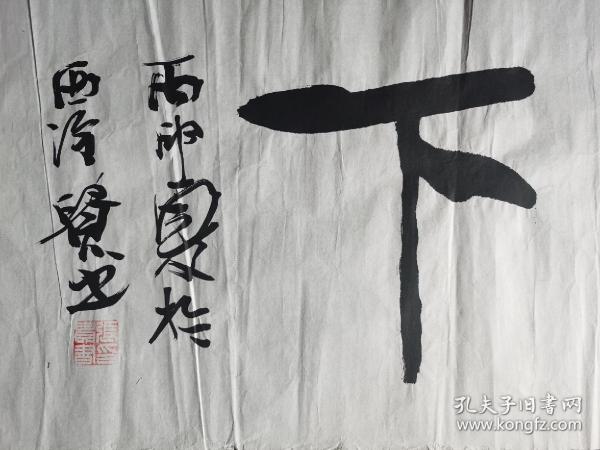 下
丙申夏於
西泠賢书
孔夫子旧书网
www.kongfz.com